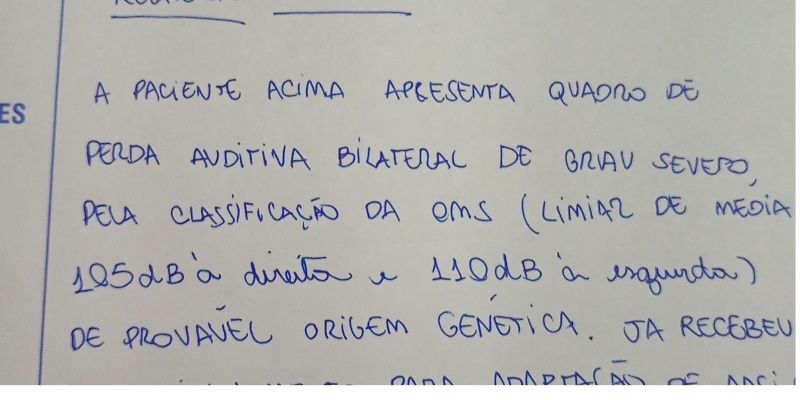 A PACIENTE ACIMA APRESENTA QUADRO DE
ES
PERDA AUDITIVA BILATERAL DE GRAU SEVERO,
PELA CLASSIFICAÇÃO DA OMS (LIMIAR DE MEDIA
105dB à direita e 110dB à esquerda)
DE PROVAVEL ORIGEM GENÉTICA. JA RECEBEU
PARA ADAPTAÇÃO DE